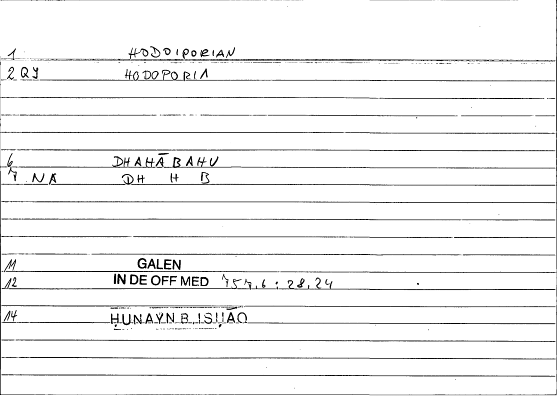 1 HODOIPORIAN
2 QY HODOPORIA
6 DHAHĀBAHU
7 NA DH H B
11 GALEN
12 IN DE OFF MED 757,6 : 28,24
14 ḤUNAYN B. ISḤĀQ